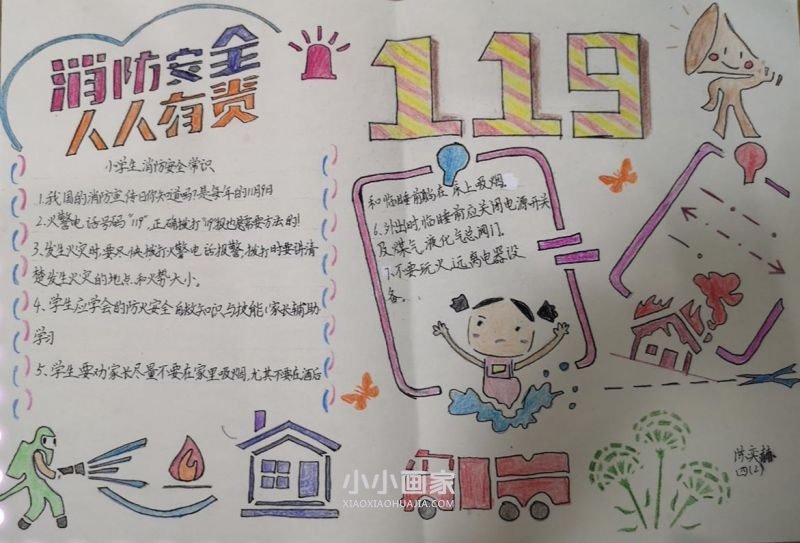 消防安全
人人有责
119
小学生消防安全常识
1.我国的消防宣传日你知道吗?是每年的11月9日
2.火警电话号码"119",正确拨打"119"报也是需要方法的!
3.发生火灾时,要尽快拨打火警电话报警,拨打时要讲清
楚发生火灾的地点和火势大小。
4.学生应学会的防火安全自救知识与技能;家长辅助
学习
5.学生要劝家长尽量不要在家里吸烟,尤其不要在酒后
和临睡前躺在床上吸烟
6.外出时,临睡前应关闭电源开关
及煤气、液化气总阀门。
7.不要玩火、远离电器设
备。
四(2)
小小画家
XIAOXIAOHUAJIA.COM